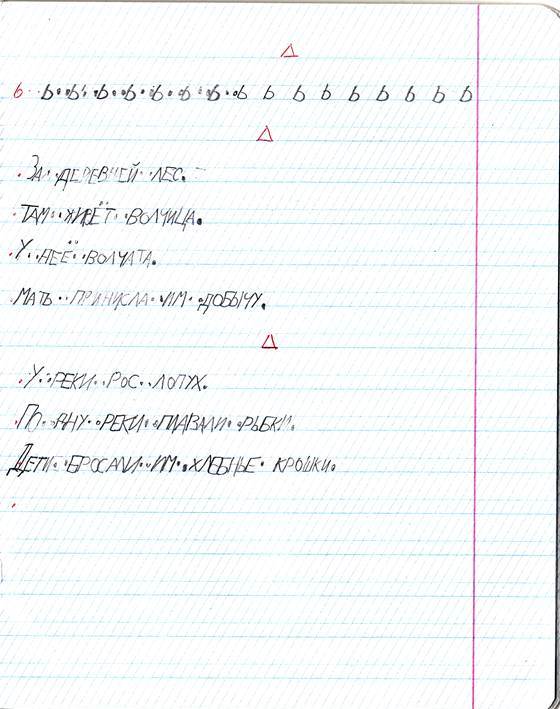 б ь ь ь ь ь ь ь ь ь ь ь ь ь ь ь ь
За деревней лес.
Там живёт волчица.
У неё волчата.
Мать принисла им добычу.
У реки рос лопух.
По дну реки плавали рыбки.
Дети бросали им хлебные крошки.